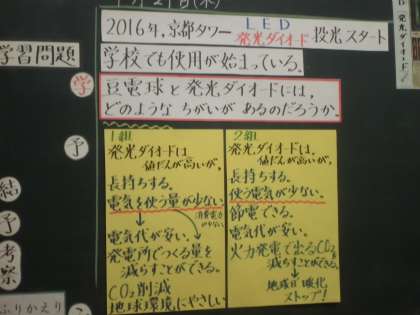 2016年,京都タワー LED 発光ダイオード 投光スタート
学校でも使用が始まっている。
学習問題
学
豆電球と発光ダイオードには,
どのような ちがいが あるのだろうか。
予
1組
発光ダイオードは
値だんが高いが,
長持ちする。
電気を使う量が少ない。
消費電力が少ない
電気代が安い。
発電所でつくる量を
減らすことができる。
CO2削減
地球環境にやさしい
2組
発光ダイオードは
値だんが高いが,
長持ちする。
使う電気が少ない。
節電できる。
電気代が安い。
火力発電で出るCO2を
減らすことができる。
地球温暖化
ストップ!
結
予
考察
ふりかえり
発光ダイオード